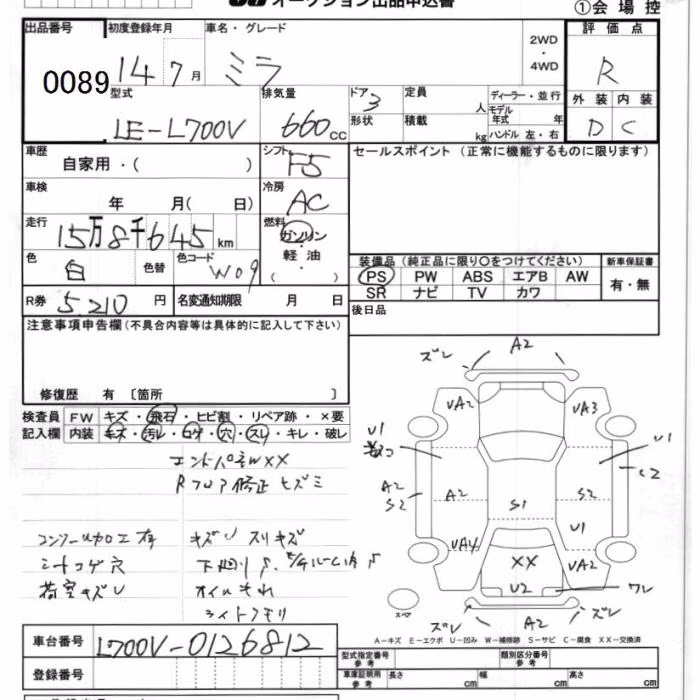 オークション出品申込書
①会場控
出品番号 初度登録年月 車名・グレード 2WD・4WD 評価点
0089 14年 7月 ミラ R
型式 排気量 ドア 定員 人 ディーラー・並行 外装 内装
LE-L700V 660cc 3 形状 積載 kg モデル年式 年 ハンドル 左・右 D C
車歴 シフト セールスポイント (正常に機能するものに限ります)
自家用・( ) F5
車検 年 月( 日) 冷房 AC
走行 燃料
15万8千645km ガソリン・軽油・( )
色 白 色替 色コード W09
装備品(純正品に限り○をつけてください) 新車保証書
PS PW ABS エアB AW 有・無
SR ナビ TV カワ
R券 5,210円 名変通知期限 月 日 後日品
注意事項申告欄(不具合内容等は具体的に記入して下さい)
修復歴 有〔箇所 〕
検査員記入欄 FW キズ・飛石・ヒビ割・リペア跡・×要
内装 キズ・汚レ・コゲ・穴・スレ・キレ・破レ
エンドパネWXX
Rフロア修正 ヒズミ
コンソール加工有 キズU スリキズ
シートコゲ穴 下廻りS
荷室キズU オイルモレ
ライトクモリ
ズレ A2
UA2 UA3
U1 U1
A2 S2 A2 S1 S2 C2
U1
UA4 XX UA2
U2 ワレ
スペア ズレ A2 ズレ
A-キズ E-エクボ U-凹み W-補修跡 S-サビ C-腐食 XX-交換済
車台番号 L700V-0126812
型式指定番号 参考 類別区分番号 参考
登録番号 車庫証明用 参考 長さ cm 幅 cm 高さ cm